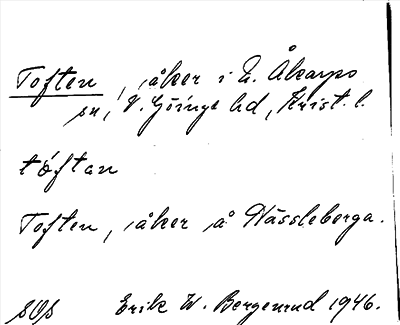 Toften, åker i N. Åkarps
sn, V. Göinge hd, Krist. l.
tóftan
Toften, åker å Nässleberga.
SOS Erik W. Bergenrud 1946.